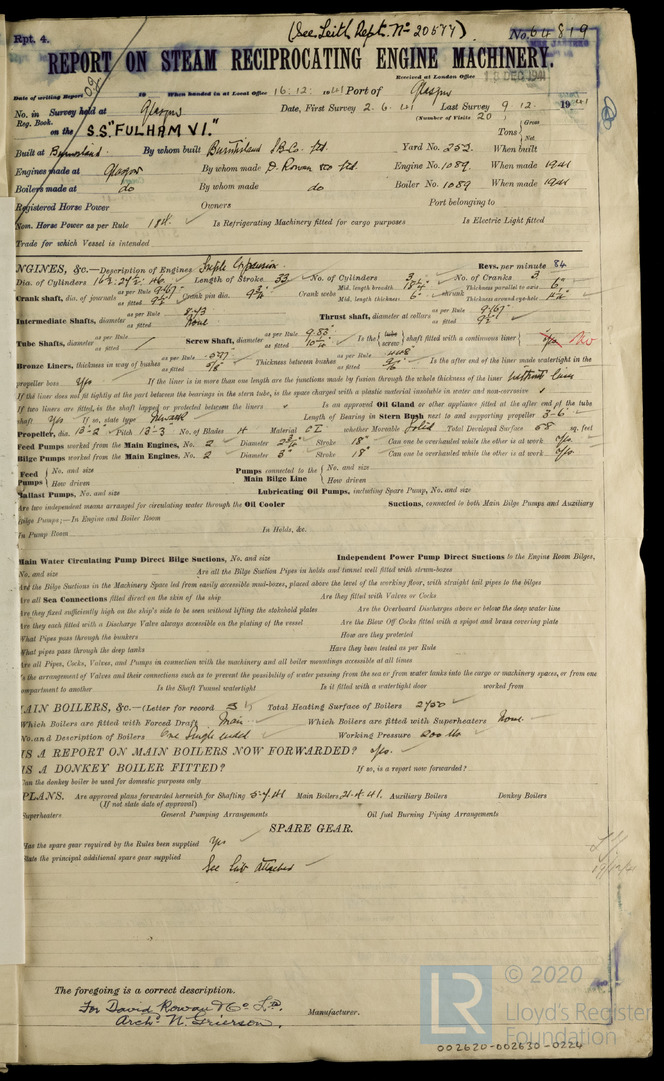 (See Leith Rept. No 20577)
Rpt. 4.
No. 64819
REPORT ON STEAM RECIPROCATING ENGINE MACHINERY.
Received at London Office 18 DEC 1941
Date of writing Report 19 When handed in at Local Office 16.12.1941 Port of Glasgow
No. in Survey held at Glasgow Date, First Survey 2.6.41 Last Survey 9.12.1941
Reg. Book. (Number of Visits 20)
on the S.S. "FULHAM VI." Tons Gross Net
Built at Burntisland By whom built Burntisland S.B. Co. Ltd. Yard No. 252 When built
Engines made at Glasgow By whom made D. Rowan & Co Ltd. Engine No. 1089 When made 1941
Boilers made at do By whom made do Boiler No. 1089 When made 1941
Registered Horse Power Owners Port belonging to
Nom. Horse Power as per Rule 184 Is Refrigerating Machinery fitted for cargo purposes Is Electric Light fitted
Trade for which Vessel is intended
NGINES, &c.—Description of Engines Triple Expansion Revs. per minute 84
Dia. of Cylinders 16½. 27½. 46 Length of Stroke 33 No. of Cylinders 3 No. of Cranks 3
Crank shaft, dia. of journals as per Rule 9.167 as fitted 9½ Crank pin dia. 9¾ Crank webs Mid. length breadth Mid. length thickness 6" shrunk Thickness parallel to axis 6" Thickness around eye-hole
Intermediate Shafts, diameter as per Rule 8.73 as fitted None Thrust shaft, diameter at collars as per Rule 9.167 as fitted 9½
Tube Shafts, diameter as per Rule as fitted Screw Shaft, diameter as per Rule 9.83 as fitted Is the tube screw shaft fitted with a continuous liner No
Bronze Liners, thickness in way of bushes as per Rule as fitted Thickness between bushes as per Rule as fitted Is the after end of the liner made watertight in the
propeller boss Yes If the liner is in more than one length are the junctions made by fusion through the whole thickness of the liner
If the liner does not fit tightly at the part between the bearings in the stern tube, is the space charged with a plastic material insoluble in water and non-corrosive
If two liners are fitted, is the shaft lapped or protected between the liners Is an approved Oil Gland or other appliance fitted at the after end of the tube
shaft Yes If so, state type Newark Length of Bearing in Stern Bush next to and supporting propeller 3-6"
Propeller, dia. 13-2 Pitch 13-3 No. of Blades 4 Material C I whether Moveable Solid Total Developed Surface 58 sq. feet
Feed Pumps worked from the Main Engines, No. 2 Diameter 2¾ Stroke 18" Can one be overhauled while the other is at work Yes
Bilge Pumps worked from the Main Engines, No. 2 Diameter 3" Stroke 18" Can one be overhauled while the other is at work Yes
Feed Pumps No. and size How driven Pumps connected to the Main Bilge Line No. and size How driven
Ballast Pumps, No. and size Lubricating Oil Pumps, including Spare Pump, No. and size
Are two independent means arranged for circulating water through the Oil Cooler Suctions, connected to both Main Bilge Pumps and Auxiliary
Bilge Pumps;—In Engine and Boiler Room
In Pump Room In Holds, &c.
Main Water Circulating Pump Direct Bilge Suctions, No. and size Independent Power Pump Direct Suctions to the Engine Room Bilges,
No. and size Are all the Bilge Suction Pipes in holds and tunnel well fitted with strum-boxes
Are the Bilge Suctions in the Machinery Space led from easily accessible mud-boxes, placed above the level of the working floor, with straight tail pipes to the bilges
Are all Sea Connections fitted direct on the skin of the ship Are they fitted with Valves or Cocks
Are they fixed sufficiently high on the ship's side to be seen without lifting the stokehold plates Are the Overboard Discharges above or below the deep water line
Are they each fitted with a Discharge Valve always accessible on the plating of the vessel Are the Blow Off Cocks fitted with a spigot and brass covering plate
What Pipes pass through the bunkers How are they protected
What pipes pass through the deep tanks Have they been tested as per Rule
Are all Pipes, Cocks, Valves, and Pumps in connection with the machinery and all boiler mountings accessible at all times
Is the arrangement of Valves and their connections such as to prevent the possibility of water passing from the sea or from water tanks into the cargo or machinery spaces, or from one
compartment to another Is the Shaft Tunnel watertight Is it fitted with a watertight door worked from
MAIN BOILERS, &c.—(Letter for record S) Total Heating Surface of Boilers 2750
Which Boilers are fitted with Forced Draft Main Which Boilers are fitted with Superheaters None
No. and Description of Boilers One Single ended Working Pressure 200 lb
IS A REPORT ON MAIN BOILERS NOW FORWARDED? Yes.
IS A DONKEY BOILER FITTED? If so, is a report now forwarded?
Can the donkey boiler be used for domestic purposes only
PLANS. Are approved plans forwarded herewith for Shafting 5-4-41 Main Boilers 21.4.41. Auxiliary Boilers Donkey Boilers
(If not state date of approval)
Superheaters General Pumping Arrangements Oil fuel Burning Piping Arrangements
SPARE GEAR.
Has the spare gear required by the Rules been supplied Yes
State the principal additional spare gear supplied
See List Attached
The foregoing is a correct description.
For David Rowan & Co Ltd.
Archd. N. Grierson.
Manufacturer.
LR © 2020
Lloyd's Register
Foundation
002620-002630-0224